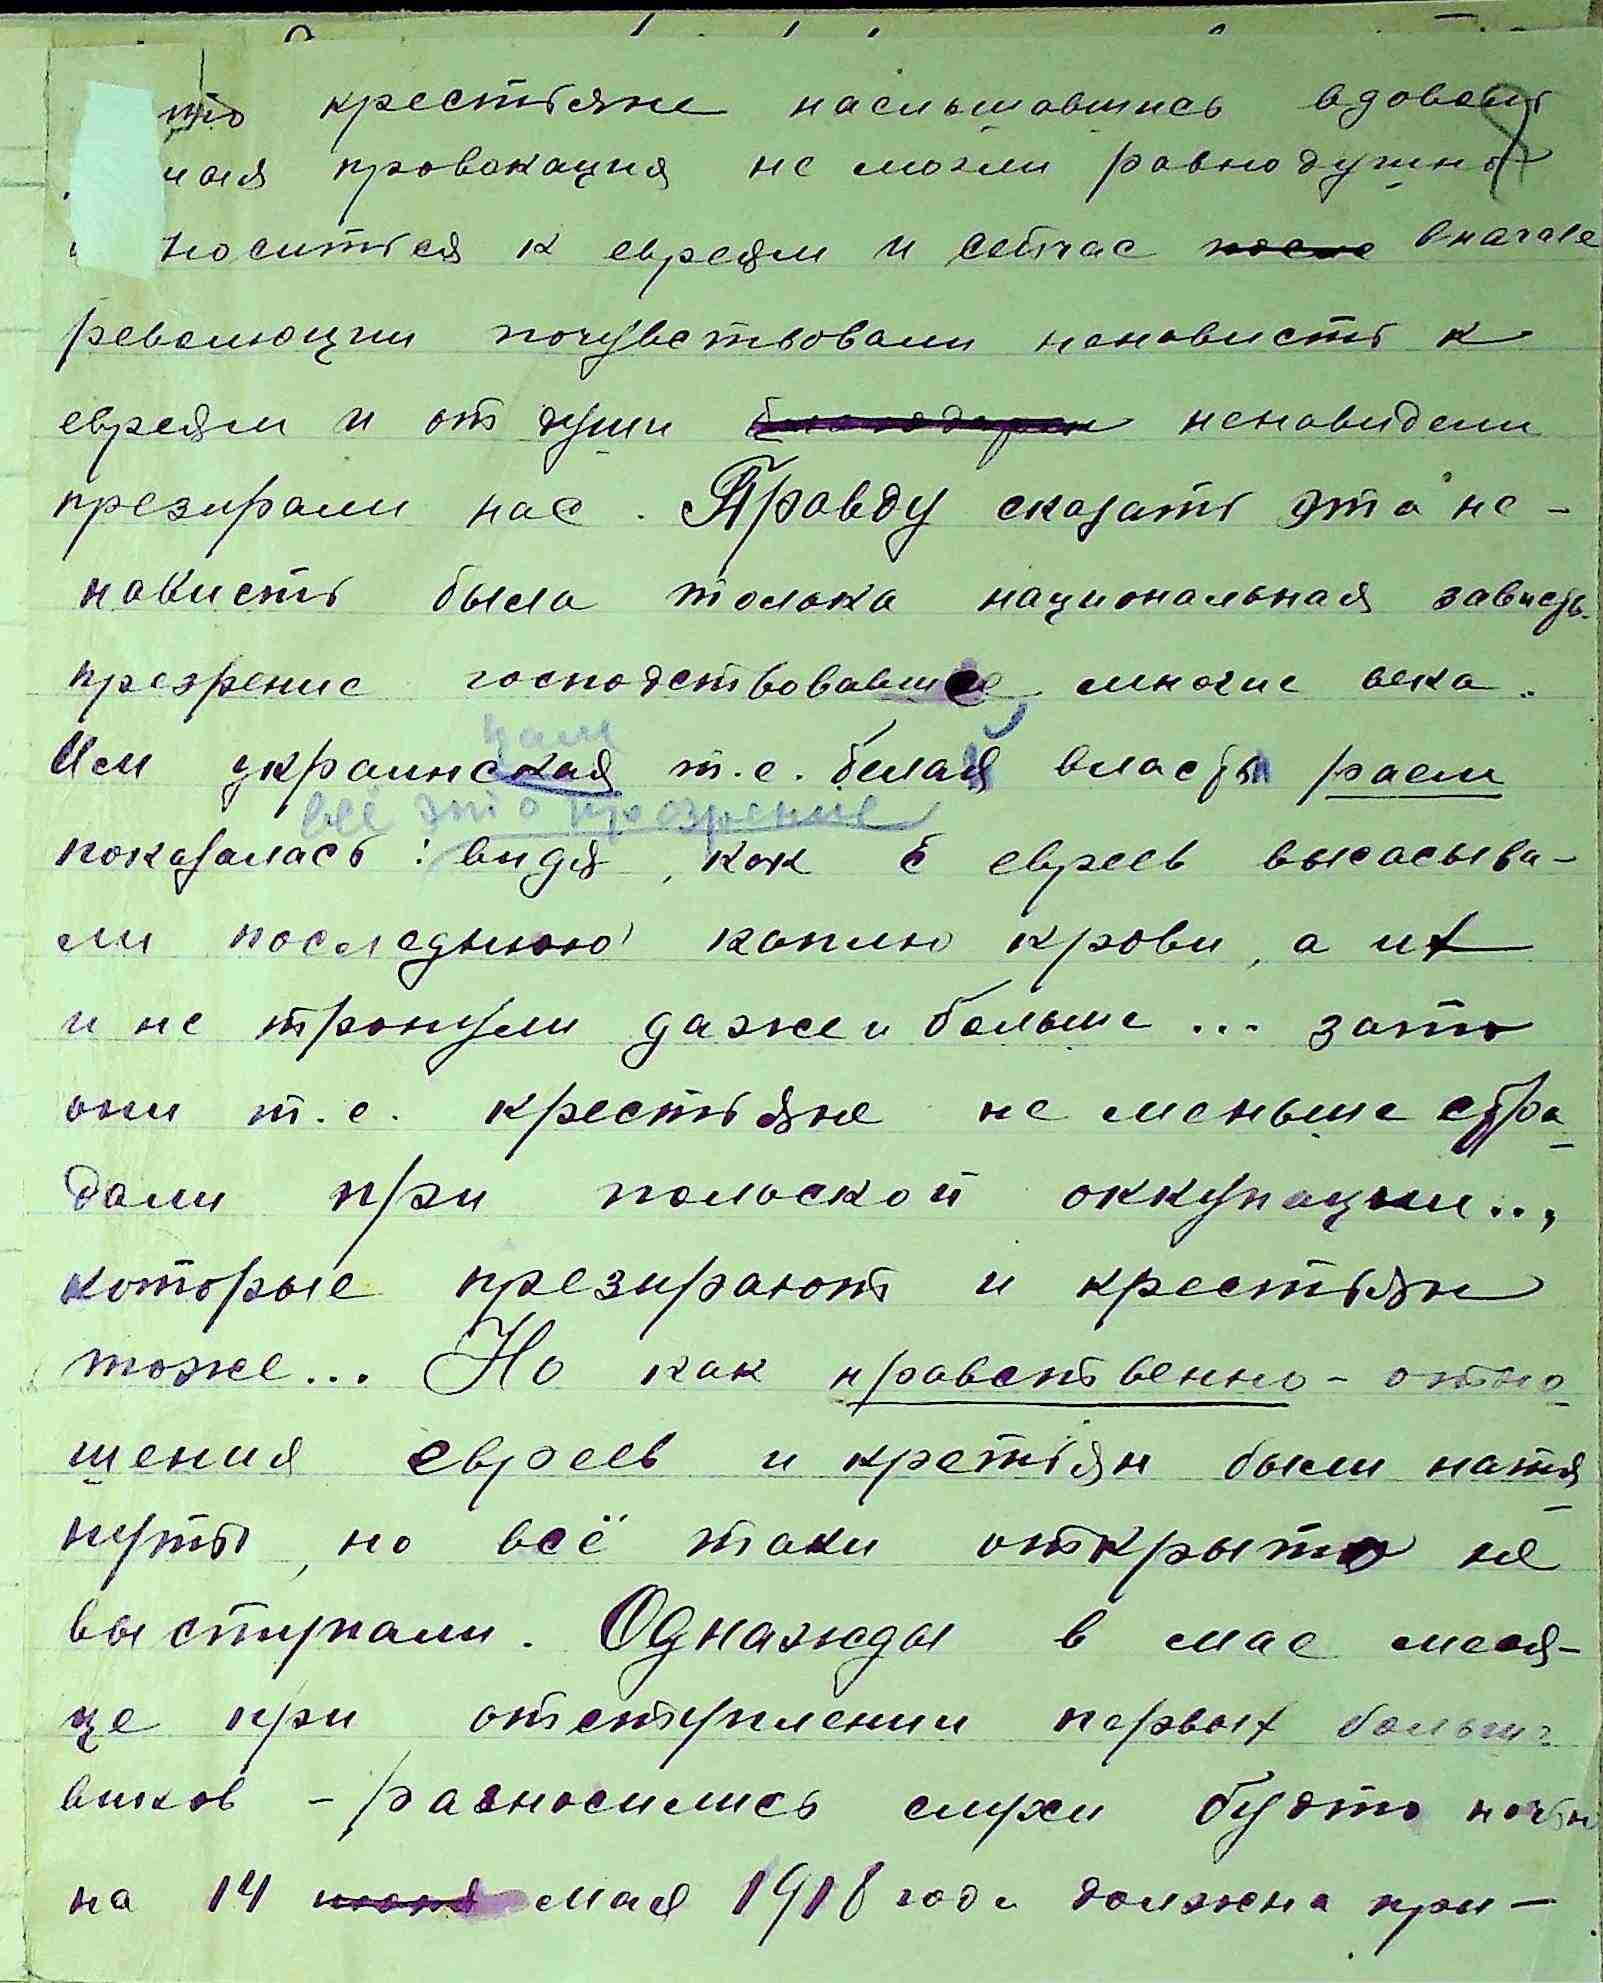 что крестьяне наслышавшись вдоволь
ная провокация не могли равнодушно
носиться к евреям и сейчас после вначале
революции почувствовали ненависть к
евреям и от души ненавидели
презирали нас. Правду сказать эта не-
нависть была только национальная зависть
презрение господствовавшее многие века.
нам
Им украинская т.е. белая власть раем
всё это презрение
показалась: видя, как с евреев высасыва-
ли последнюю каплю крови, а их
и не тронули даже и больше... зато
они т.е. крестьяне не меньше стра-
дали при польской оккупации...,
которые презирают и крестьян
тоже... Но как нравственно - отно-
шения евреев и кретьян были натя-
нуты, но всё таки открыто не
выступали. Однажды в мае меся-
це при отступлении первых больше-
виков - разносились слухи будто ночью
на 14 июня мая 1918 года должна при-